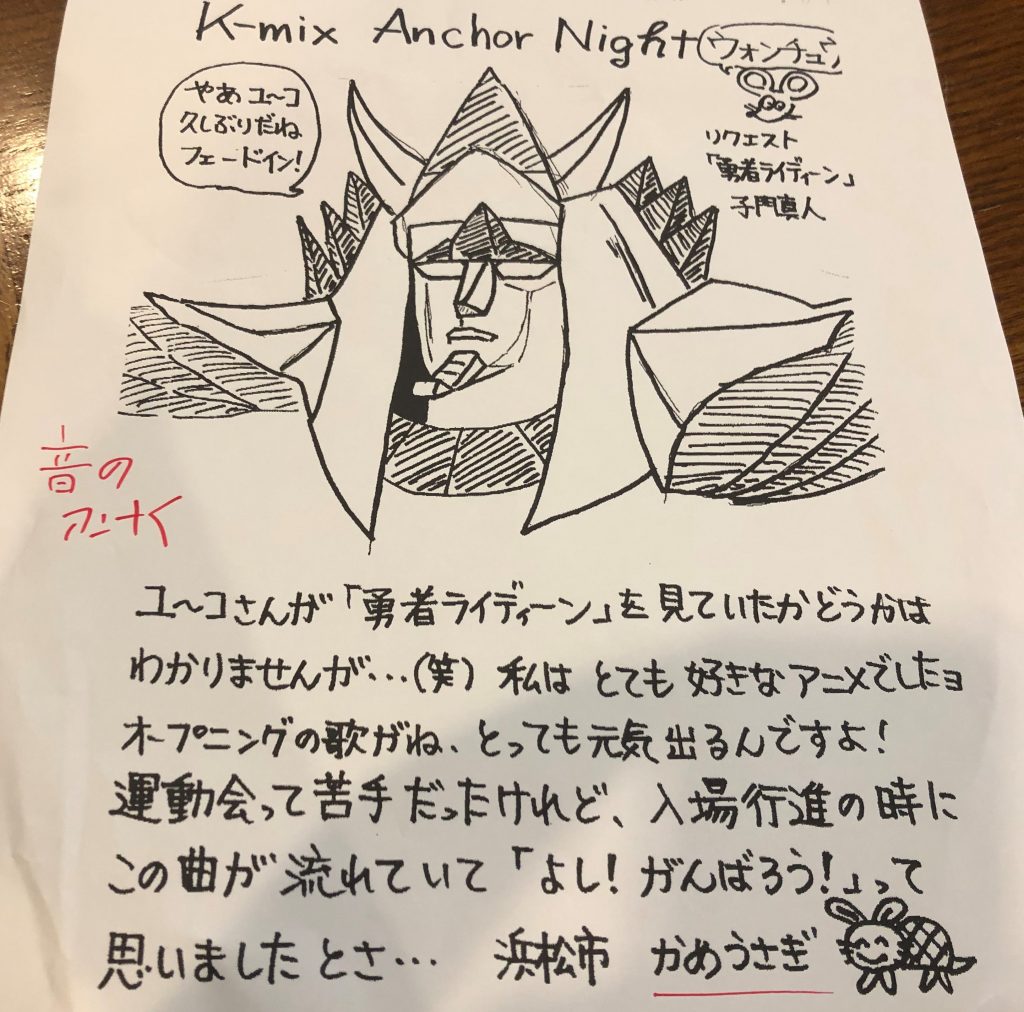 K-mix Anchor Night
ウォンチュ
やあ ユ〜コ
久しぶりだね
フェードイン!
リクエスト
「勇者ライディーン」
子門真人
音の
ユ〜コさんが「勇者ライディーン」を見ていたかどうかは
わかりませんが…(笑) 私は とても 好きなアニメでしたョ
オープニングの歌がね、とっても元気出るんですよ!
運動会って苦手だったけれど、入場行進の時に
この曲が 流れていて「よし! がんばろう!」って
思いましたとさ… 浜松市 かめうさぎ